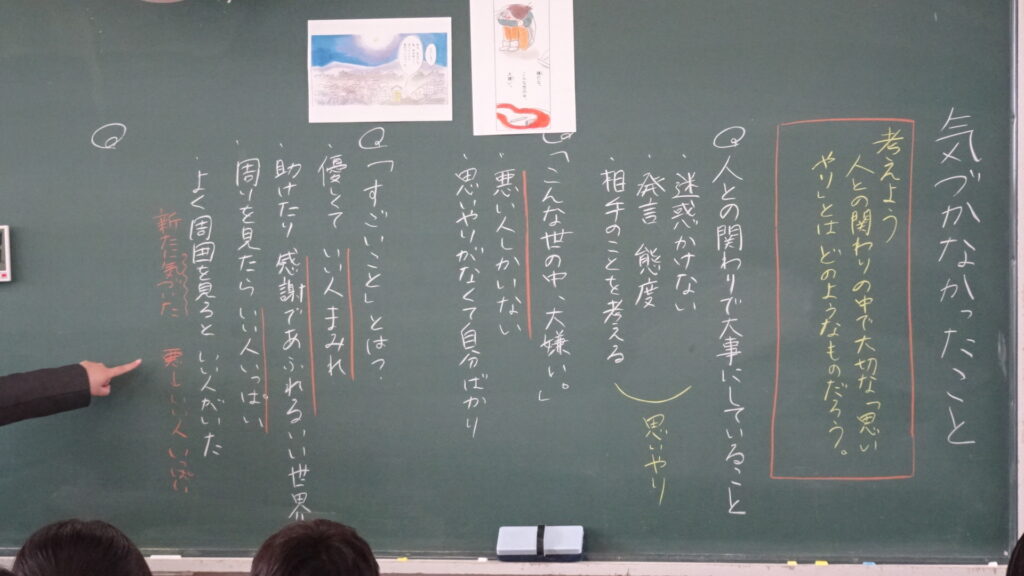 気づかなかったこと
考えよう
人との関わりの中で大切な「思い
やり」とは どのようなものだろう。
Q 人との関わりで大事にしていること
・迷惑かけない
・発言 態度
・相手のことを考える
思いやり
Q「こんな世の中、大嫌い。」
・悪い人しかいない
・思いやりがなくて自分ばかり
Q「すごいこと」とは?
・優しくて いい人まみれ
・助けたり 感謝であふれるいい世界
・周りを見たら いい人いっぱい
・よく周囲を見ると いい人がいた
新たな気づいた
いい人 いっぱい
Q